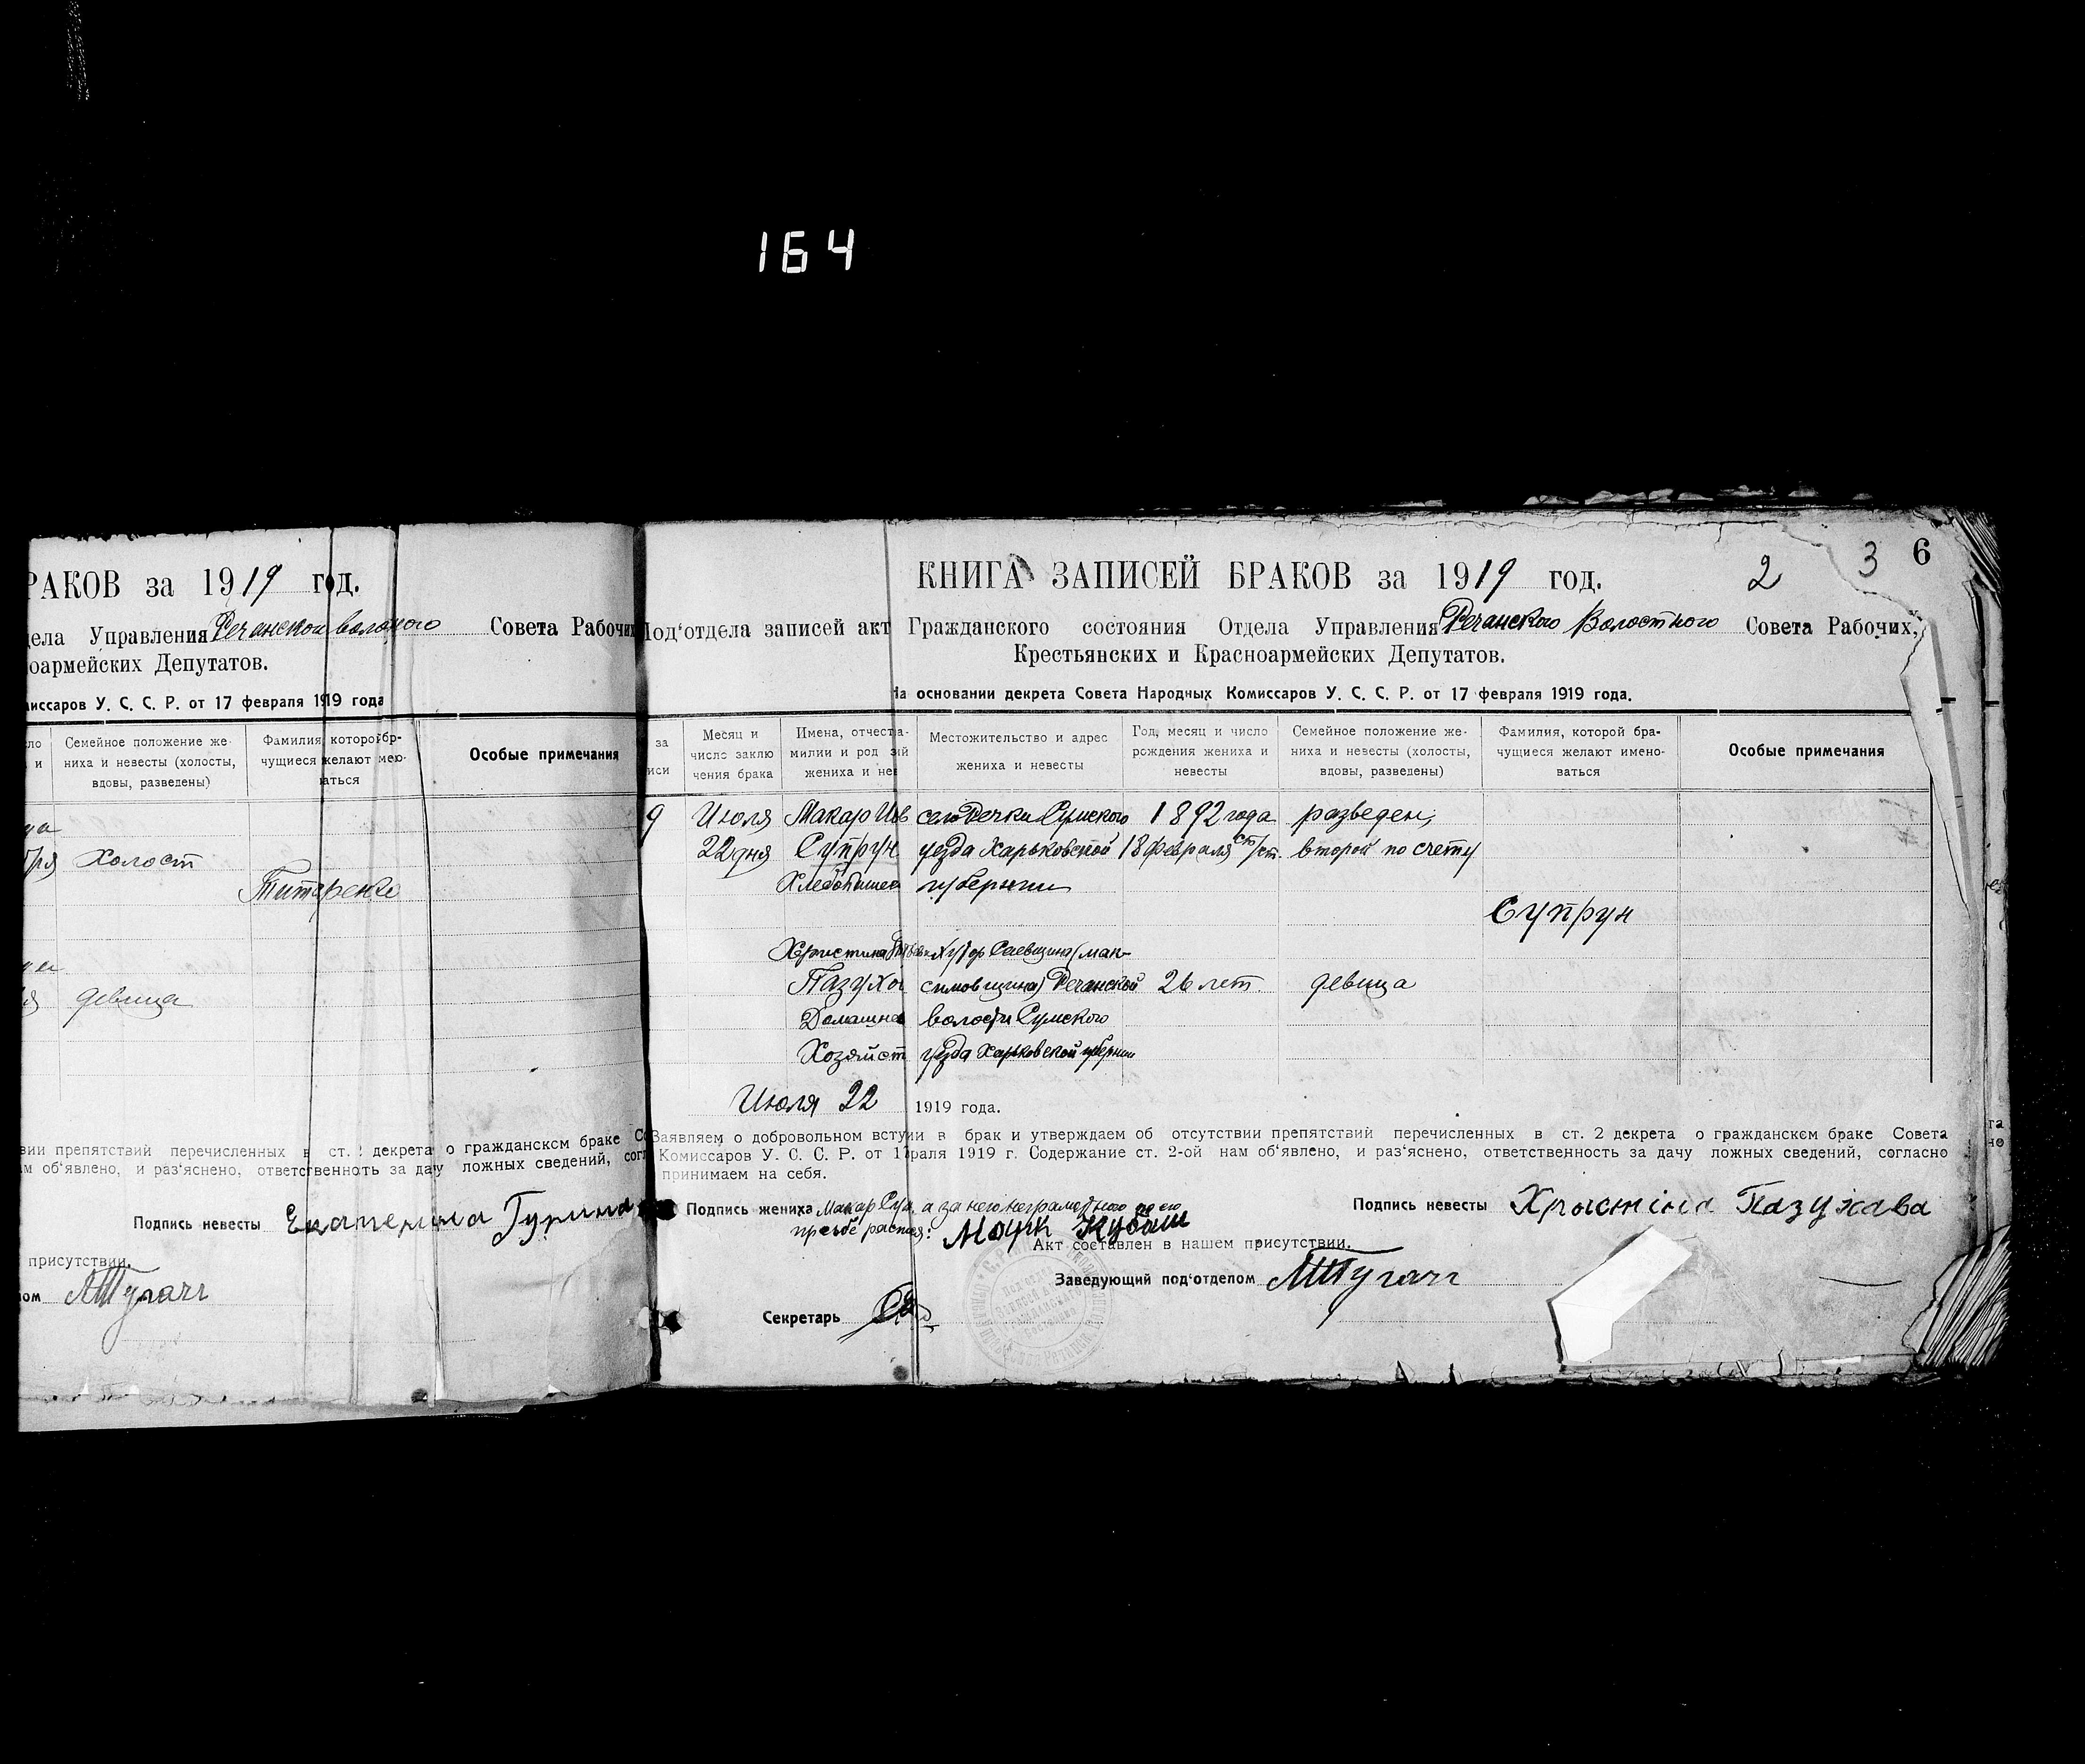 164
РАКОВ за 1919 год.
дела Управления Речанского волосного Совета Рабочих
ноармейских Депутатов.
миссаров У. С. С. Р. от 17 февраля 1919 года
Семейное положение же-
ниха и невесты (холосты,
вдовы, разведены)
Фамилия которой бр-
чущиеся желают мено-
ваться
Особые примечания
Холост
Титаренко
девица
вии препятствий перечисленных в ст. 2 декрета о гражданском браке Со
м об‘явлено, и раз‘яснено, ответственность за дачу ложных сведений, согл
Подпись невесты Екатерина Гурина
присутствии.
ом
2 3 6
КНИГА ЗАПИСЕЙ БРАКОВ за 1919 год.
Под‘отдела записей акт Гражданского состояния Отдела Управления Речанского Волостного Совета Рабочих,
Крестьянских и Красноармейских Депутатов.
На основании декрета Совета Народных Комиссаров У. С. С. Р. от 17 февраля 1919 года.
за
иси
Месяц и
число заклю
чения брака
Имена, отчества-
милии и род зй
жениха и нев
Местожительство и адрес
жениха и невесты
Год, месяц и число
рождения жениха и
невесты
Семейное положение же-
ниха и невесты (холосты,
вдовы, разведены)
Фамилия, которой бра-
чущиеся желают имено-
ваться
Особые примечания
9 Июля Макар Ив село Речки Сумского 1892 года разведен,
22 дня Супрун уезда Харьковской 18 февраля ст/ст. второй по счету
Хлебопашец губернии
Супрун
Христина Хутор Саевщина (мак-
Пазухо симовщина) Речанской 26 лет девица
Домашнее волости Сумского
Хозяйст уезда Харьковской губернии
Июля 22 1919 года.
Заявляем о добровольном вступи в брак и утверждаем об отсутствии препятствий перечисленных в ст. 2 декрета о гражданском браке Совета
Комиссаров У. С. С. Р. от 17раля 1919 г. Содержание ст. 2-ой нам об‘явлено, и раз‘яснено, ответственность за дачу ложных сведений, согласно
принимаем на себя.
Подпись жениха Макар Суп. а за него неграмотного по его
просьбе распися: Марк Кубаш
Подпись невесты Христіна Пазухава
Акт составлен в нашем присутствии.
Заведующий под‘отделом
Секретарь